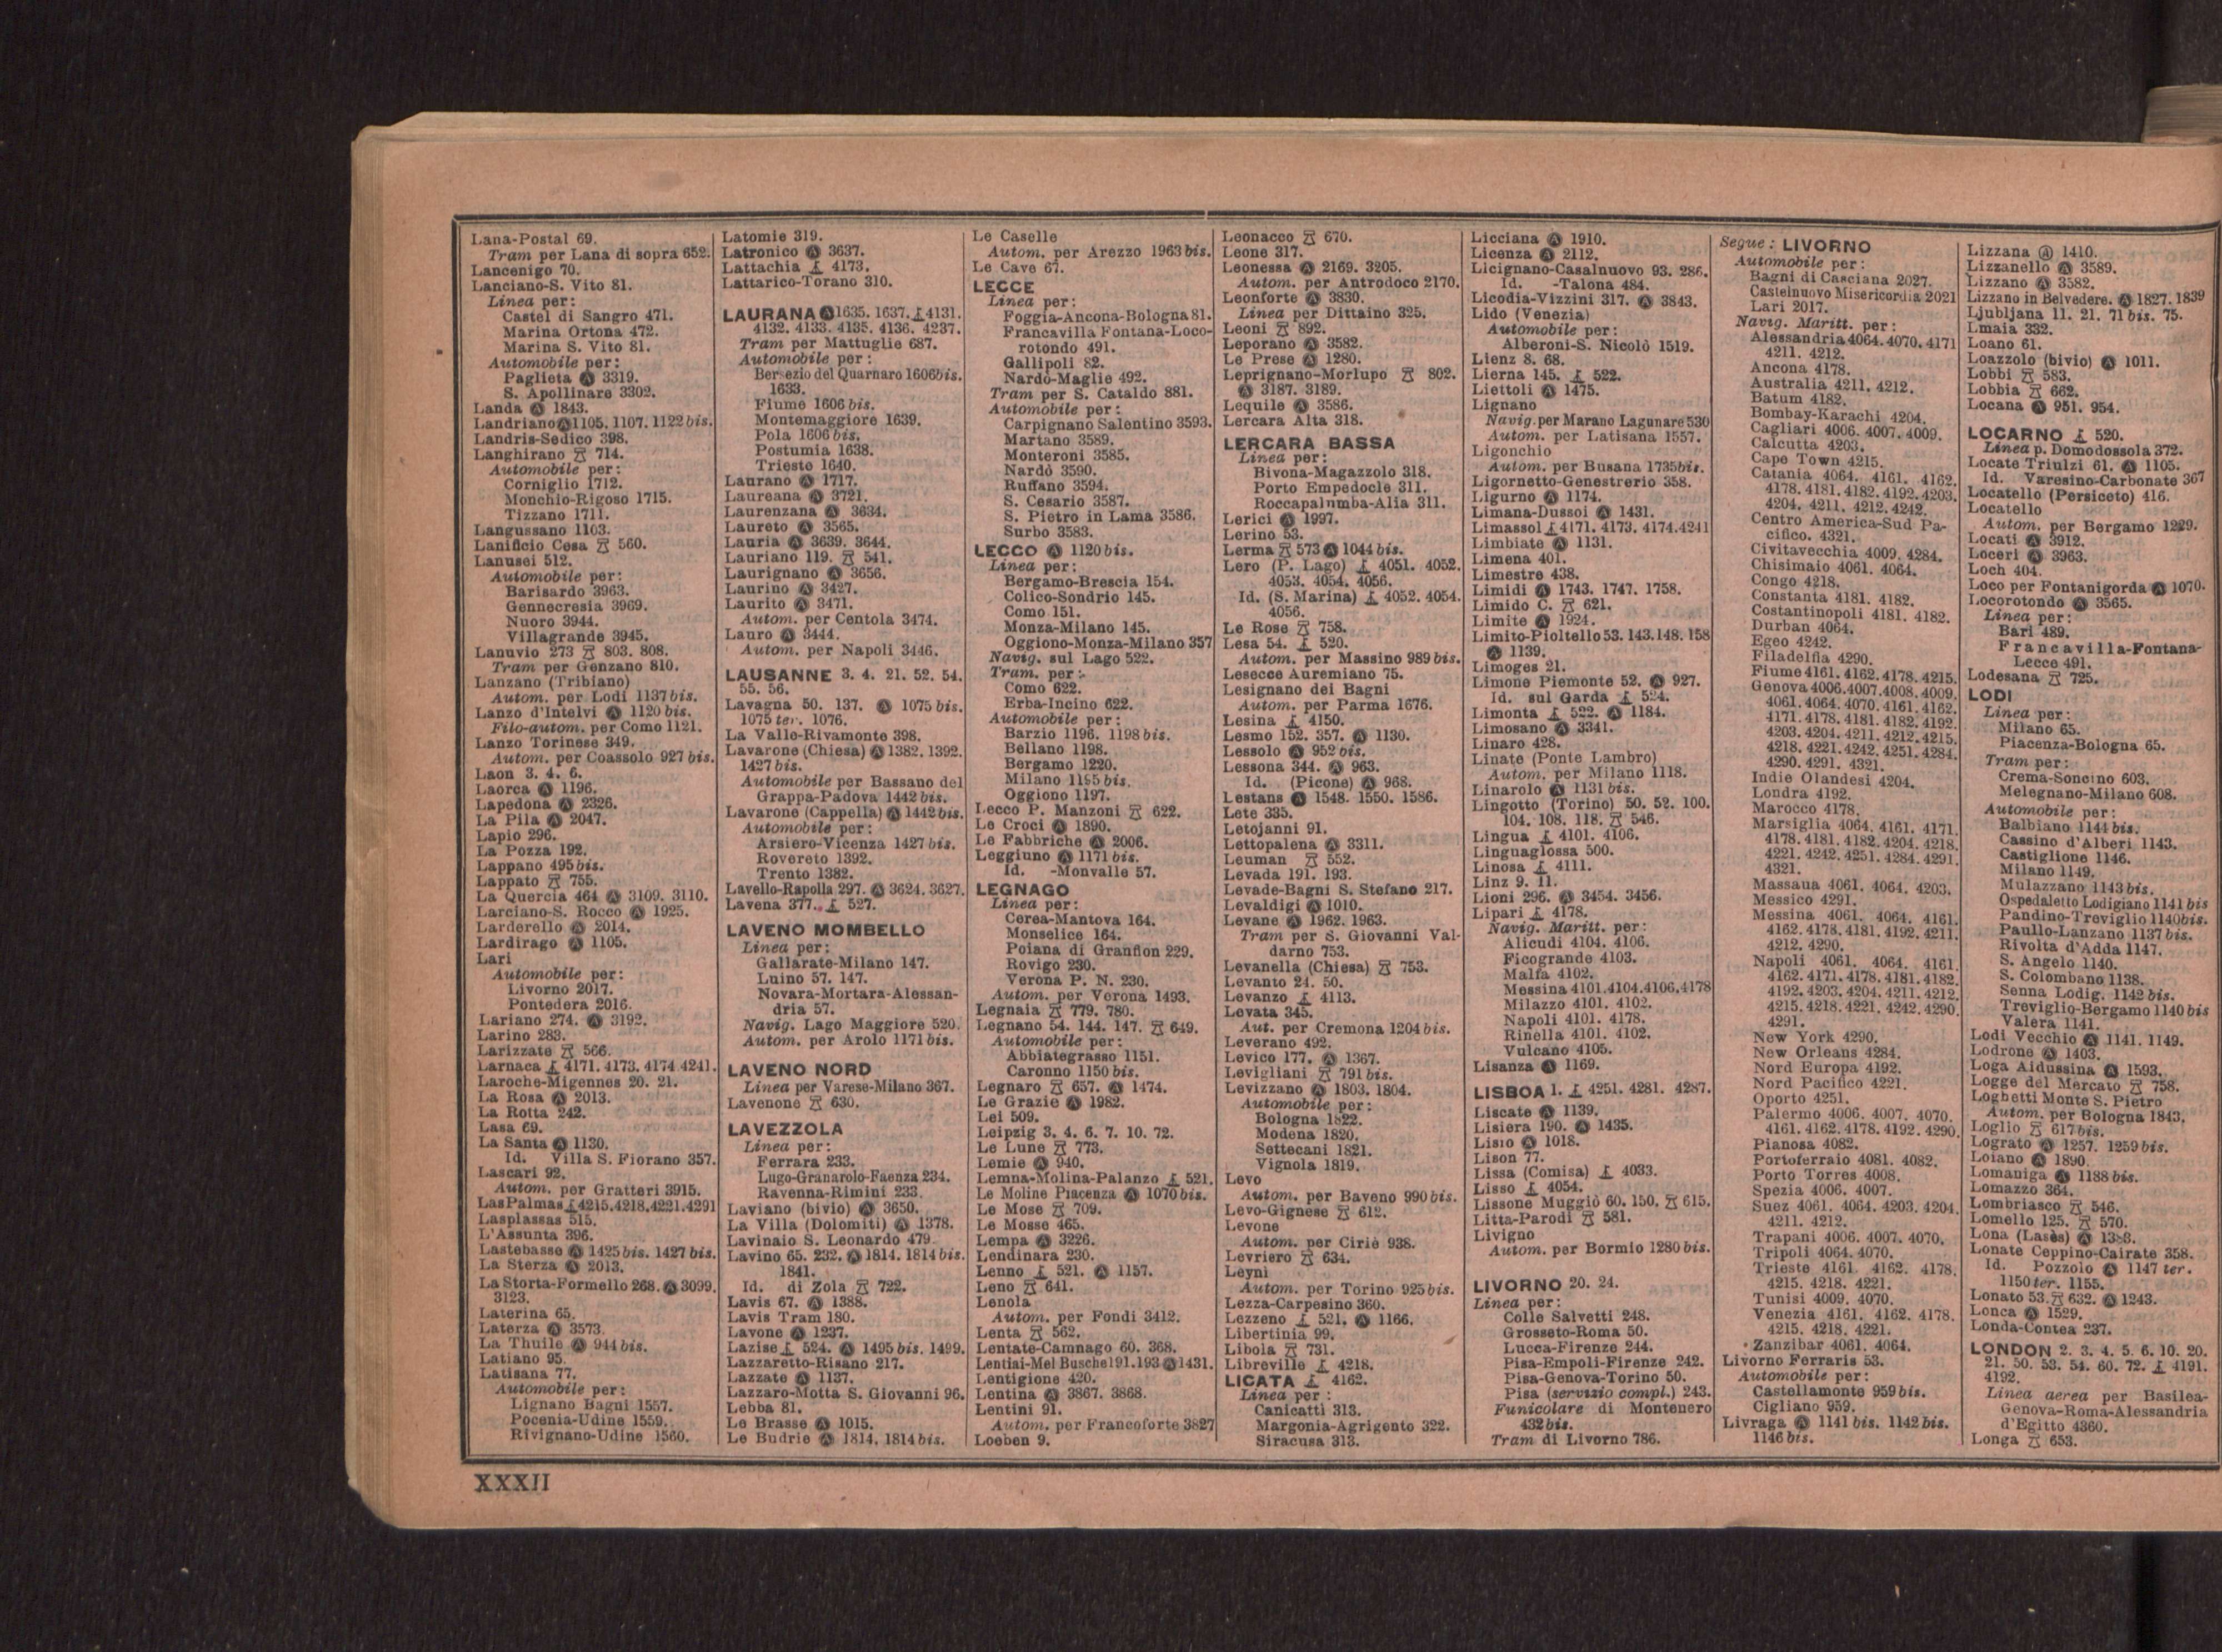 Lana-Postal 69.
Tram per Lana di sopra 652.
Lancenigo 70.
Lanciano-S. Vito 81.
Linea per:
Castel di Sangro 471.
Marina Ortona 472.
Marina S. Vito 81.
Automobile per:
Paglieta Ⓐ 3319.
S. Apollinare 3302.
Landa Ⓐ 1843.
Landriano Ⓐ 1105. 1107. 1122 bis.
Landris-Sedico 398.
Langhirano 714.
Automobile per:
Corniglio 1712.
Monchio-Rigoso 1715.
Tizzano 1711.
Langussano 1103.
Lanificio Cesa 560.
Lanusei 512.
Automobile per:
Barisardo 3963.
Gennecresia 3969.
Nuoro 3944.
Villagrande 3945.
Lanuvio 273 803. 808.
Tram per Genzano 810.
Lanzano (Tribiano)
Autom. per Lodi 1137 bis.
Lanzo d'Intelvi Ⓐ 1120 bis.
Filo-autom. per Como 1121.
Lanzo Torinese 349.
Autom. per Coassolo 927 bis.
Laon 3. 4. 6.
Laorca Ⓐ 1196.
Lapedona Ⓐ 2326.
La Pila Ⓐ 2047.
Lapio 296.
La Pozza 192.
Lappano 495 bis.
Lappato 755.
La Quercia 464 Ⓐ 3109. 3110.
Larciano-S. Rocco Ⓐ 1925.
Larderello Ⓐ 2014.
Lardirago Ⓐ 1105.
Lari
Automobile per:
Livorno 2017.
Pontedera 2016.
Lariano 274. Ⓐ 3192.
Larino 283.
Larizzate 566.
Larnaca 4171. 4173. 4174 4241.
Laroche-Migennes 20. 21.
La Rosa Ⓐ 2013.
La Rotta 242.
Lasa 69.
La Santa Ⓐ 1130.
Id. Villa S. Fiorano 357.
Lascari 92.
Autom. per Gratteri 3915.
Las Palmas 4215. 4218. 4221. 4291
Lasplassas 515.
L'Assunta 396.
Lastebasse Ⓐ 1425 bis. 1427 bis.
La Sterza Ⓐ 2013.
La Storta-Formello 268. Ⓐ 3099.
3123.
Laterina 65.
Laterza Ⓐ 3573.
La Thuile Ⓐ 944 bis.
Latiano 95.
Latisana 77.
Automobile per:
Lignano Bagni 1557.
Pocenia-Udine 1559.
Rivignano-Udine 1560.
Latomie 319.
Latronico Ⓐ 3637.
Lattachia 4173.
Lattarico-Torano 310.
LAURANA Ⓐ 1635. 1637. 4131.
4132. 4133. 4135. 4136. 4237.
Tram per Mattuglie 687.
Automobile per:
Bersezio del Quarnaro 1606 bis.
1633.
Fiume 1606 bis.
Montemaggiore 1639.
Pola 1606 bis.
Postumia 1638.
Trieste 1640.
Laurano Ⓐ 1717.
Laureana Ⓐ 3721.
Laurenzana Ⓐ 3634.
Laureto Ⓐ 3565.
Lauria Ⓐ 3639. 3644.
Lauriano 119. 541.
Laurignano Ⓐ 3656.
Laurino Ⓐ 3427.
Laurito Ⓐ 3471.
Autom. per Centola 3474.
Lauro Ⓐ 3444.
Autom. per Napoli 3446.
LAUSANNE 3. 4. 21. 52. 54.
55. 56.
Lavagna 50. 137. Ⓐ 1075 bis.
1075 ter. 1076.
La Valle-Rivamonte 398.
Lavarone (Chiesa) Ⓐ 1382. 1392.
1427 bis.
Automobile per Bassano del
Grappa-Padova 1442 bis.
Lavarone (Cappella) Ⓐ 1442 bis.
Automobile per:
Arsiero-Vicenza 1427 bis.
Rovereto 1392.
Trento 1382.
Lavello-Rapolla 297. Ⓐ 3624. 3627.
Lavena 377. 527.
LAVENO MOMBELLO
Linea per:
Gallarate-Milano 147.
Luino 57. 147.
Novara-Mortara-Alessan-
dria 57.
Navig. Lago Maggiore 520.
Autom. per Arolo 1171 bis.
LAVENO NORD
Linea per Varese-Milano 367.
Lavenone 630.
LAVEZZOLA
Linea per:
Ferrara 233.
Lugo-Granarolo-Faenza 234.
Ravenna-Rimini 233.
Laviano (bivio) Ⓐ 3650.
La Villa (Dolomiti) Ⓐ 1378.
Lavinaio S. Leonardo 479.
Lavino 65. 232. Ⓐ 1814. 1814 bis.
1841.
Id. di Zola 722.
Lavis 67. Ⓐ 1388.
Lavis Tram 180.
Lavone Ⓐ 1237.
Lazise 524. Ⓐ 1495 bis. 1499.
Lazzaretto-Risano 217.
Lazzate Ⓐ 1137.
Lazzaro-Motta S. Giovanni 96.
Lebba 81.
Le Brasse Ⓐ 1015.
Le Budrie Ⓐ 1814. 1814 bis.
Le Caselle
Autom. per Arezzo 1963 bis.
Le Cave 67.
LECCE
Linea per:
Foggia-Ancona-Bologna 81.
Francavilla Fontana-Loco-
rotondo 491.
Gallipoli 82.
Nardò-Maglie 492.
Tram per S. Cataldo 881.
Automobile per:
Carpignano Salentino 3593.
Martano 3589.
Monteroni 3585.
Nardò 3590.
Ruffano 3594.
S. Cesario 3587.
S. Pietro in Lama 3586.
Surbo 3583.
LECCO Ⓐ 1120 bis.
Linea per:
Bergamo-Brescia 154.
Colico-Sondrio 145.
Como 151.
Monza-Milano 145.
Oggiono-Monza-Milano 357
Navig. sul Lago 522.
Tram. per:
Como 622.
Erba-Incino 622.
Automobile per:
Barzio 1196. 1198 bis.
Bellano 1198.
Bergamo 1220.
Milano 1195 bis.
Oggiono 1197.
Lecco P. Manzoni 622.
Le Croci Ⓐ 1890.
Le Fabbriche Ⓐ 2006.
Leggiuno Ⓐ 1171 bis.
Id. -Monvalle 57.
LEGNAGO
Linea per:
Cerea-Mantova 164.
Monselice 164.
Poiana di Granfion 229.
Rovigo 230.
Verona P. N. 230.
Autom. per Verona 1493.
Legnaia 779. 780.
Legnano 54. 144. 147. 649.
Automobile per:
Abbiategrasso 1151.
Caronno 1150 bis.
Legnaro 657. Ⓐ 1474.
Le Grazie Ⓐ 1982.
Lei 509.
Leipzig 3. 4. 6. 7. 10. 72.
Le Lune 773.
Lemie Ⓐ 940.
Lemna-Molina-Palanzo 521.
Le Moline Piacenza Ⓐ 1070 bis.
Le Mose 709.
Le Mosse 465.
Lempa Ⓐ 3226.
Lendinara 230.
Lenno 521. Ⓐ 1157.
Leno 641.
Lenola
Autom. per Fondi 3412.
Lenta 562.
Lentate-Camnago 60. 368.
Lentiai-Mel Busche 191. 193 Ⓐ 1431.
Lentigione 420.
Lentina Ⓐ 3867. 3868.
Lentini 91.
Autom. per Francoforte 3827
Loeben 9.
Leonacco 670.
Leone 317.
Leonessa Ⓐ 2169. 3205.
Autom. per Antrodoco 2170.
Leonforte Ⓐ 3830.
Linea per Dittaino 325.
Leoni 892.
Leporano Ⓐ 3582.
Le Prese Ⓐ 1280.
Leprignano-Morlupo 802.
Ⓐ 3187. 3189.
Lequile Ⓐ 3586.
Lercara Alta 318.
LERCARA BASSA
Linea per:
Bivona-Magazzolo 318.
Porto Empedocle 311.
Roccapalumba-Alia 311.
Lerici Ⓐ 1997.
Lerino 53.
Lerma 573 Ⓐ 1044 bis.
Lero (P. Lago) 4051. 4052.
4053. 4054. 4056.
Id. (S. Marina) 4052. 4054.
4056.
Le Rose 758.
Lesa 54. 520.
Autom. per Massino 989 bis.
Lesecce Auremiano 75.
Lesignano dei Bagni
Autom. per Parma 1676.
Lesina 4150.
Lesmo 152. 357. Ⓐ 1130.
Lessolo Ⓐ 952 bis.
Lessona 344. Ⓐ 963.
Id. (Picone) Ⓐ 968.
Lestans Ⓐ 1548. 1550. 1586.
Lete 335.
Letojanni 91.
Lettopalena Ⓐ 3311.
Leuman 552.
Levada 191. 193.
Levade-Bagni S. Stefano 217.
Levaldigi Ⓐ 1010.
Levane Ⓐ 1962. 1963.
Tram per S. Giovanni Val-
darno 753.
Levanella (Chiesa) 753.
Levanto 24. 50.
Levanzo 4113.
Levata 345.
Aut. per Cremona 1204 bis.
Leverano 492.
Levico 177. Ⓐ 1367.
Levigliani 791 bis.
Levizzano Ⓐ 1803. 1804.
Automobile per:
Bologna 1822.
Modena 1820.
Settecani 1821.
Vignola 1819.
Levo
Autom. per Baveno 990 bis.
Levo-Gignese 612.
Levone
Autom. per Ciriè 938.
Levriero 634.
Leyni
Autom. per Torino 925 bis.
Lezza-Carpesino 360.
Lezzeno 521. Ⓐ 1166.
Libertinia 99.
Libola 731.
Libreville 4218.
LICATA 4162.
Linea per:
Canicattì 313.
Margonia-Agrigento 322.
Siracusa 313.
Licciana Ⓐ 1910.
Licenza Ⓐ 2112.
Licignano-Casalnuovo 93. 286.
Id. -Talona 484.
Licodia-Vizzini 317. Ⓐ 3843.
Lido (Venezia)
Automobile per:
Alberoni-S. Nicolò 1519.
Lienz 8. 68.
Lierna 145. 522.
Liettoli Ⓐ 1475.
Lignano
Navig. per Marano Lagunare 530
Autom. per Latisana 1557.
Ligonchio
Autom. per Busana 1735 bis.
Ligornetto-Genestrerio 358.
Ligurno Ⓐ 1174.
Limana-Dussoi Ⓐ 1431.
Limassol 4171. 4173. 4174. 4241
Limbiate Ⓐ 1131.
Limena 401.
Limestre 438.
Limidi Ⓐ 1743. 1747. 1758.
Limido C. 621.
Limite Ⓐ 1924.
Limito-Pioltello 53. 143. 148. 158
Ⓐ 1139.
Limoges 21.
Limone Piemonte 52. Ⓐ 927.
Id. sul Garda 524.
Limonta 522. Ⓐ 1184.
Limosano Ⓐ 3341.
Linaro 428.
Linate (Ponte Lambro)
Autom. per Milano 1118.
Linarolo Ⓐ 1131 bis.
Lingotto (Torino) 50. 52. 100.
104. 108. 118. 546.
Lingua 4101. 4106.
Linguaglossa 500.
Linosa 4111.
Linz 9. 11.
Lioni 296. Ⓐ 3454. 3456.
Lipari 4178.
Navig. Maritt. per:
Alicudi 4104. 4106.
Ficogrande 4103.
Malfa 4102.
Messina 4101. 4104. 4106. 4178
Milazzo 4101. 4102.
Napoli 4101. 4178.
Rinella 4101. 4102.
Vulcano 4105.
Lisanza Ⓐ 1169.
LISBOA 1. 4251. 4281. 4287.
Liscate Ⓐ 1139.
Lisiera 190. Ⓐ 1435.
Lisio Ⓐ 1018.
Lison 77.
Lissa (Comisa) 4033.
Lisso 4054.
Lissone Muggiò 60. 150. 615.
Litta-Parodi 581.
Livigno
Autom. per Bormio 1280 bis.
LIVORNO 20. 24.
Linea per:
Colle Salvetti 248.
Grosseto-Roma 50.
Lucca-Firenze 244.
Pisa-Empoli-Firenze 242.
Pisa-Genova-Torino 50.
Pisa (servizio compl.) 243.
Funicolare di Montenero
432 bis.
Tram di Livorno 786.
Segue: LIVORNO
Automobile per:
Bagni di Casciana 2027.
Castelnuovo Misericordia 2021
Lari 2017.
Navig. Maritt. per:
Alessandria 4064. 4070. 4171
4211. 4212.
Ancona 4178.
Australia 4211. 4212.
Batum 4182.
Bombay-Karachi 4204.
Cagliari 4006. 4007. 4009.
Calcutta 4203.
Cape Town 4215.
Catania 4064. 4161. 4162.
4178. 4181. 4182. 4192. 4203.
4204. 4211. 4212. 4242.
Centro America-Sud Pa-
cifico. 4321.
Civitavecchia 4009. 4284.
Chisimaio 4061. 4064.
Congo 4218.
Constanta 4181. 4182.
Costantinopoli 4181. 4182.
Durban 4064.
Egeo 4242.
Filadelfia 4290.
Fiume 4161. 4162. 4178. 4215.
Genova 4006. 4007. 4008. 4009.
4061. 4064. 4070. 4161. 4162.
4171. 4178. 4181. 4182. 4192.
4203. 4204. 4211. 4212. 4215.
4218. 4221. 4242. 4251. 4284.
4290. 4291. 4321.
Indie Olandesi 4204.
Londra 4192.
Marocco 4178.
Marsiglia 4064. 4161. 4171.
4178. 4181. 4182. 4204. 4218.
4221. 4242. 4251. 4284. 4291.
4321.
Massaua 4061. 4064. 4203.
Messico 4291.
Messina 4061. 4064. 4161.
4162. 4178. 4181. 4192. 4211.
4212. 4290.
Napoli 4061. 4064. 4161.
4162. 4171. 4178. 4181. 4182.
4192. 4203. 4204. 4211. 4212.
4215. 4218. 4221. 4242. 4290.
4291.
New York 4290.
New Orleans 4284.
Nord Europa 4192.
Nord Pacifico 4221.
Oporto 4251.
Palermo 4006. 4007. 4070.
4161. 4162. 4178. 4192. 4290.
Pianosa 4082.
Portoferraio 4081. 4082.
Porto Torres 4008.
Spezia 4006. 4007.
Suez 4061. 4064. 4203. 4204.
4211. 4212.
Trapani 4006. 4007. 4070.
Tripoli 4064. 4070.
Trieste 4161. 4162. 4178.
4215. 4218. 4221.
Tunisi 4009. 4070.
Venezia 4161. 4162. 4178.
4215. 4218. 4221.
Zanzibar 4061. 4064.
Livorno Ferraris 53.
Automobile per:
Castellamonte 959 bis.
Cigliano 959.
Livraga Ⓐ 1141 bis. 1142 bis.
1146 bis.
Lizzana Ⓐ 1410.
Lizzanello Ⓐ 3589.
Lizzano Ⓐ 3582.
Lizzano in Belvedere. Ⓐ 1827. 1839
Ljubljana 11. 21. 71 bis. 75.
Lmaia 332.
Loano 61.
Loazzolo (bivio) Ⓐ 1011.
Lobbi 583.
Lobbia 662.
Locana Ⓐ 951. 954.
LOCARNO 520.
Linea p. Domodossola 372.
Locate Triulzi 61. Ⓐ 1105.
Id. Varesino-Carbonate 367
Locatello (Persiceto) 416.
Locatello
Autom. per Bergamo 1229.
Locati Ⓐ 3912.
Loceri Ⓐ 3963.
Loch 404.
Loco per Fontanigorda Ⓐ 1070.
Locorotondo Ⓐ 3565.
Linea per:
Bari 489.
Francavilla-Fontana-
Lecce 491.
Lodesana 725.
LODI
Linea per:
Milano 65.
Piacenza-Bologna 65.
Tram per:
Crema-Soncino 603.
Melegnano-Milano 608.
Automobile per:
Balbiano 1144 bis.
Cassino d'Alberi 1143.
Castiglione 1146.
Milano 1149.
Mulazzano 1143 bis.
Ospedaletto Lodigiano 1141 bis
Pandino-Treviglio 1140 bis.
Paullo-Lanzano 1137 bis.
Rivolta d'Adda 1147.
S. Angelo 1140.
S. Colombano 1138.
Senna Lodig. 1142 bis.
Treviglio-Bergamo 1140 bis
Valera 1141.
Lodi Vecchio Ⓐ 1141. 1149.
Lodrone Ⓐ 1403.
Loga Aidussina Ⓐ 1593.
Logge del Mercato 758.
Loghetti Monte S. Pietro
Autom. per Bologna 1843.
Loglio 617 bis.
Lograto Ⓐ 1257. 1259 bis.
Loiano Ⓐ 1890.
Lomaniga Ⓐ 1188 bis.
Lomazzo 364.
Lombriasco 546.
Lomello 125. 570.
Lona (Lasès) Ⓐ
Lonate Ceppino-Cairate 358.
Id. Pozzolo Ⓐ 1147 ter.
1150 ter. 1155.
Lonato 53. 632. Ⓐ 1243.
Lonca Ⓐ 1529.
Londa-Contea 237.
LONDON 2. 3. 4. 5. 6. 10. 20.
21. 50. 53. 54. 60. 72. 4191.
4192.
Linea aerea per Basilea-
Genova-Roma-Alessandria
d'Egitto 4360.
Longa 653.
XXXII